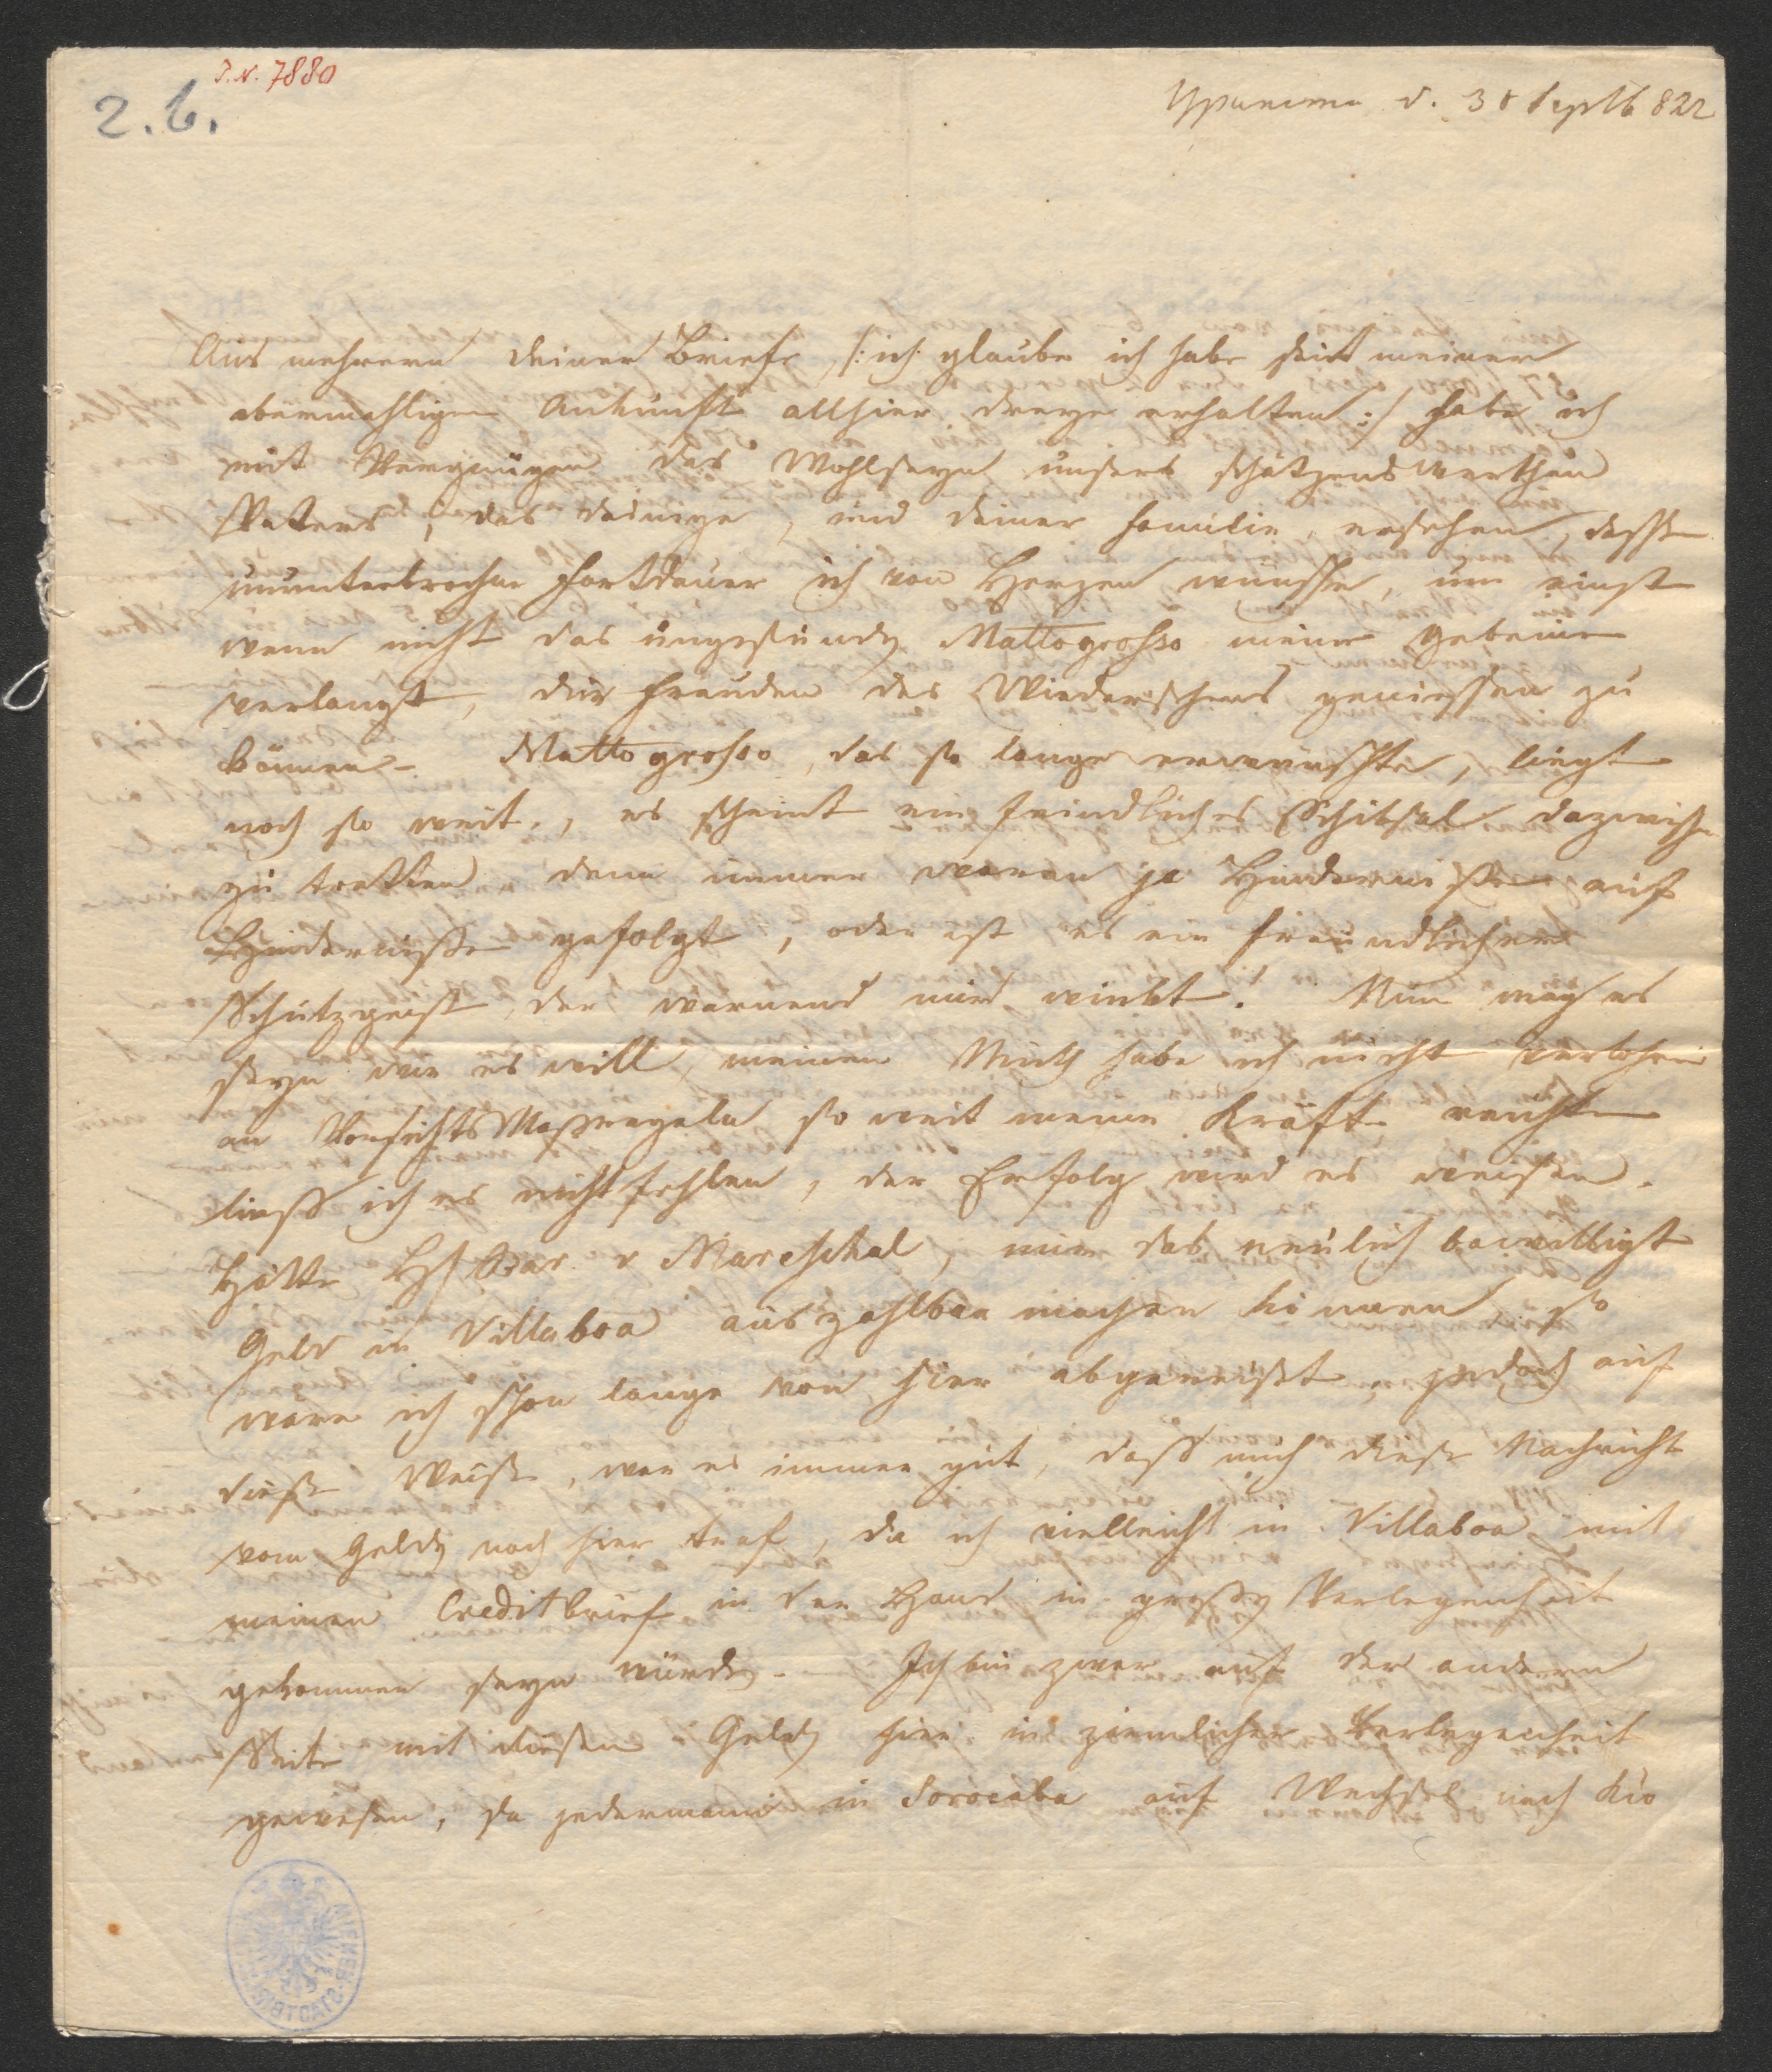 J.N. 7880
2. b.
Ypanema d. 30 Septb 822
Aus mehrern deiner Briefe, /: ich glaube ich habe seit meiner
abermahligen Ankunft allhier dreye erhalten :/ habe ich
mit Vergnügen das Wohlseyn unsers schätzenswerthen
Vaters, das deinige, und deiner Familie ersehen, dessen
ununterbrochne Fortdauer ich von Herzen wünsche, um einst
wenn nicht das ungesunde Mattogrosso meine Gebeine
verlangt, die Freuden des Wiedersehens geniessen zu
können. Mattogrosso, das so lange erwünschte, liegt
noch so weit, es scheint ein feindliches Schiksal dazwischen
zu tretten denn immer waren ja Hindernisse auf
Hindernisse gefolgt, oder ist es ein freundlicher
Schutzgeist, der warnend mir winkt. Nun mag es
seyn wie es will, meinen Muth habe ich nicht verlohren
an Vorsichts Massregeln so weit meine Kräfte reichten
liess ich es nicht fehlen, der Erfolg wird es weisen.
Hätte H. Bar. v Mareschal, mir das neulich bewilligte
Geld in Villaboa auszahlbar machen können, so
ware ich schon lange von hier abgereisst, jedoch auf
diese Weise, war es immer gut, dass mich diese Nachricht
vom Gelde noch hier traf, da ich vielleicht in Villaboa mit
meinen Creditbrief in der Hand in grosse Verlegenheit
gekommen seyn würde. Ich bin zwar auf der andern
Seite mit diesen Gelde hier in ziemlicher Verlegenheit
gewesen, da jedermann in Sorocaba auf Wechsel nach Rio
WIENER STADTBIBLIOTHEK